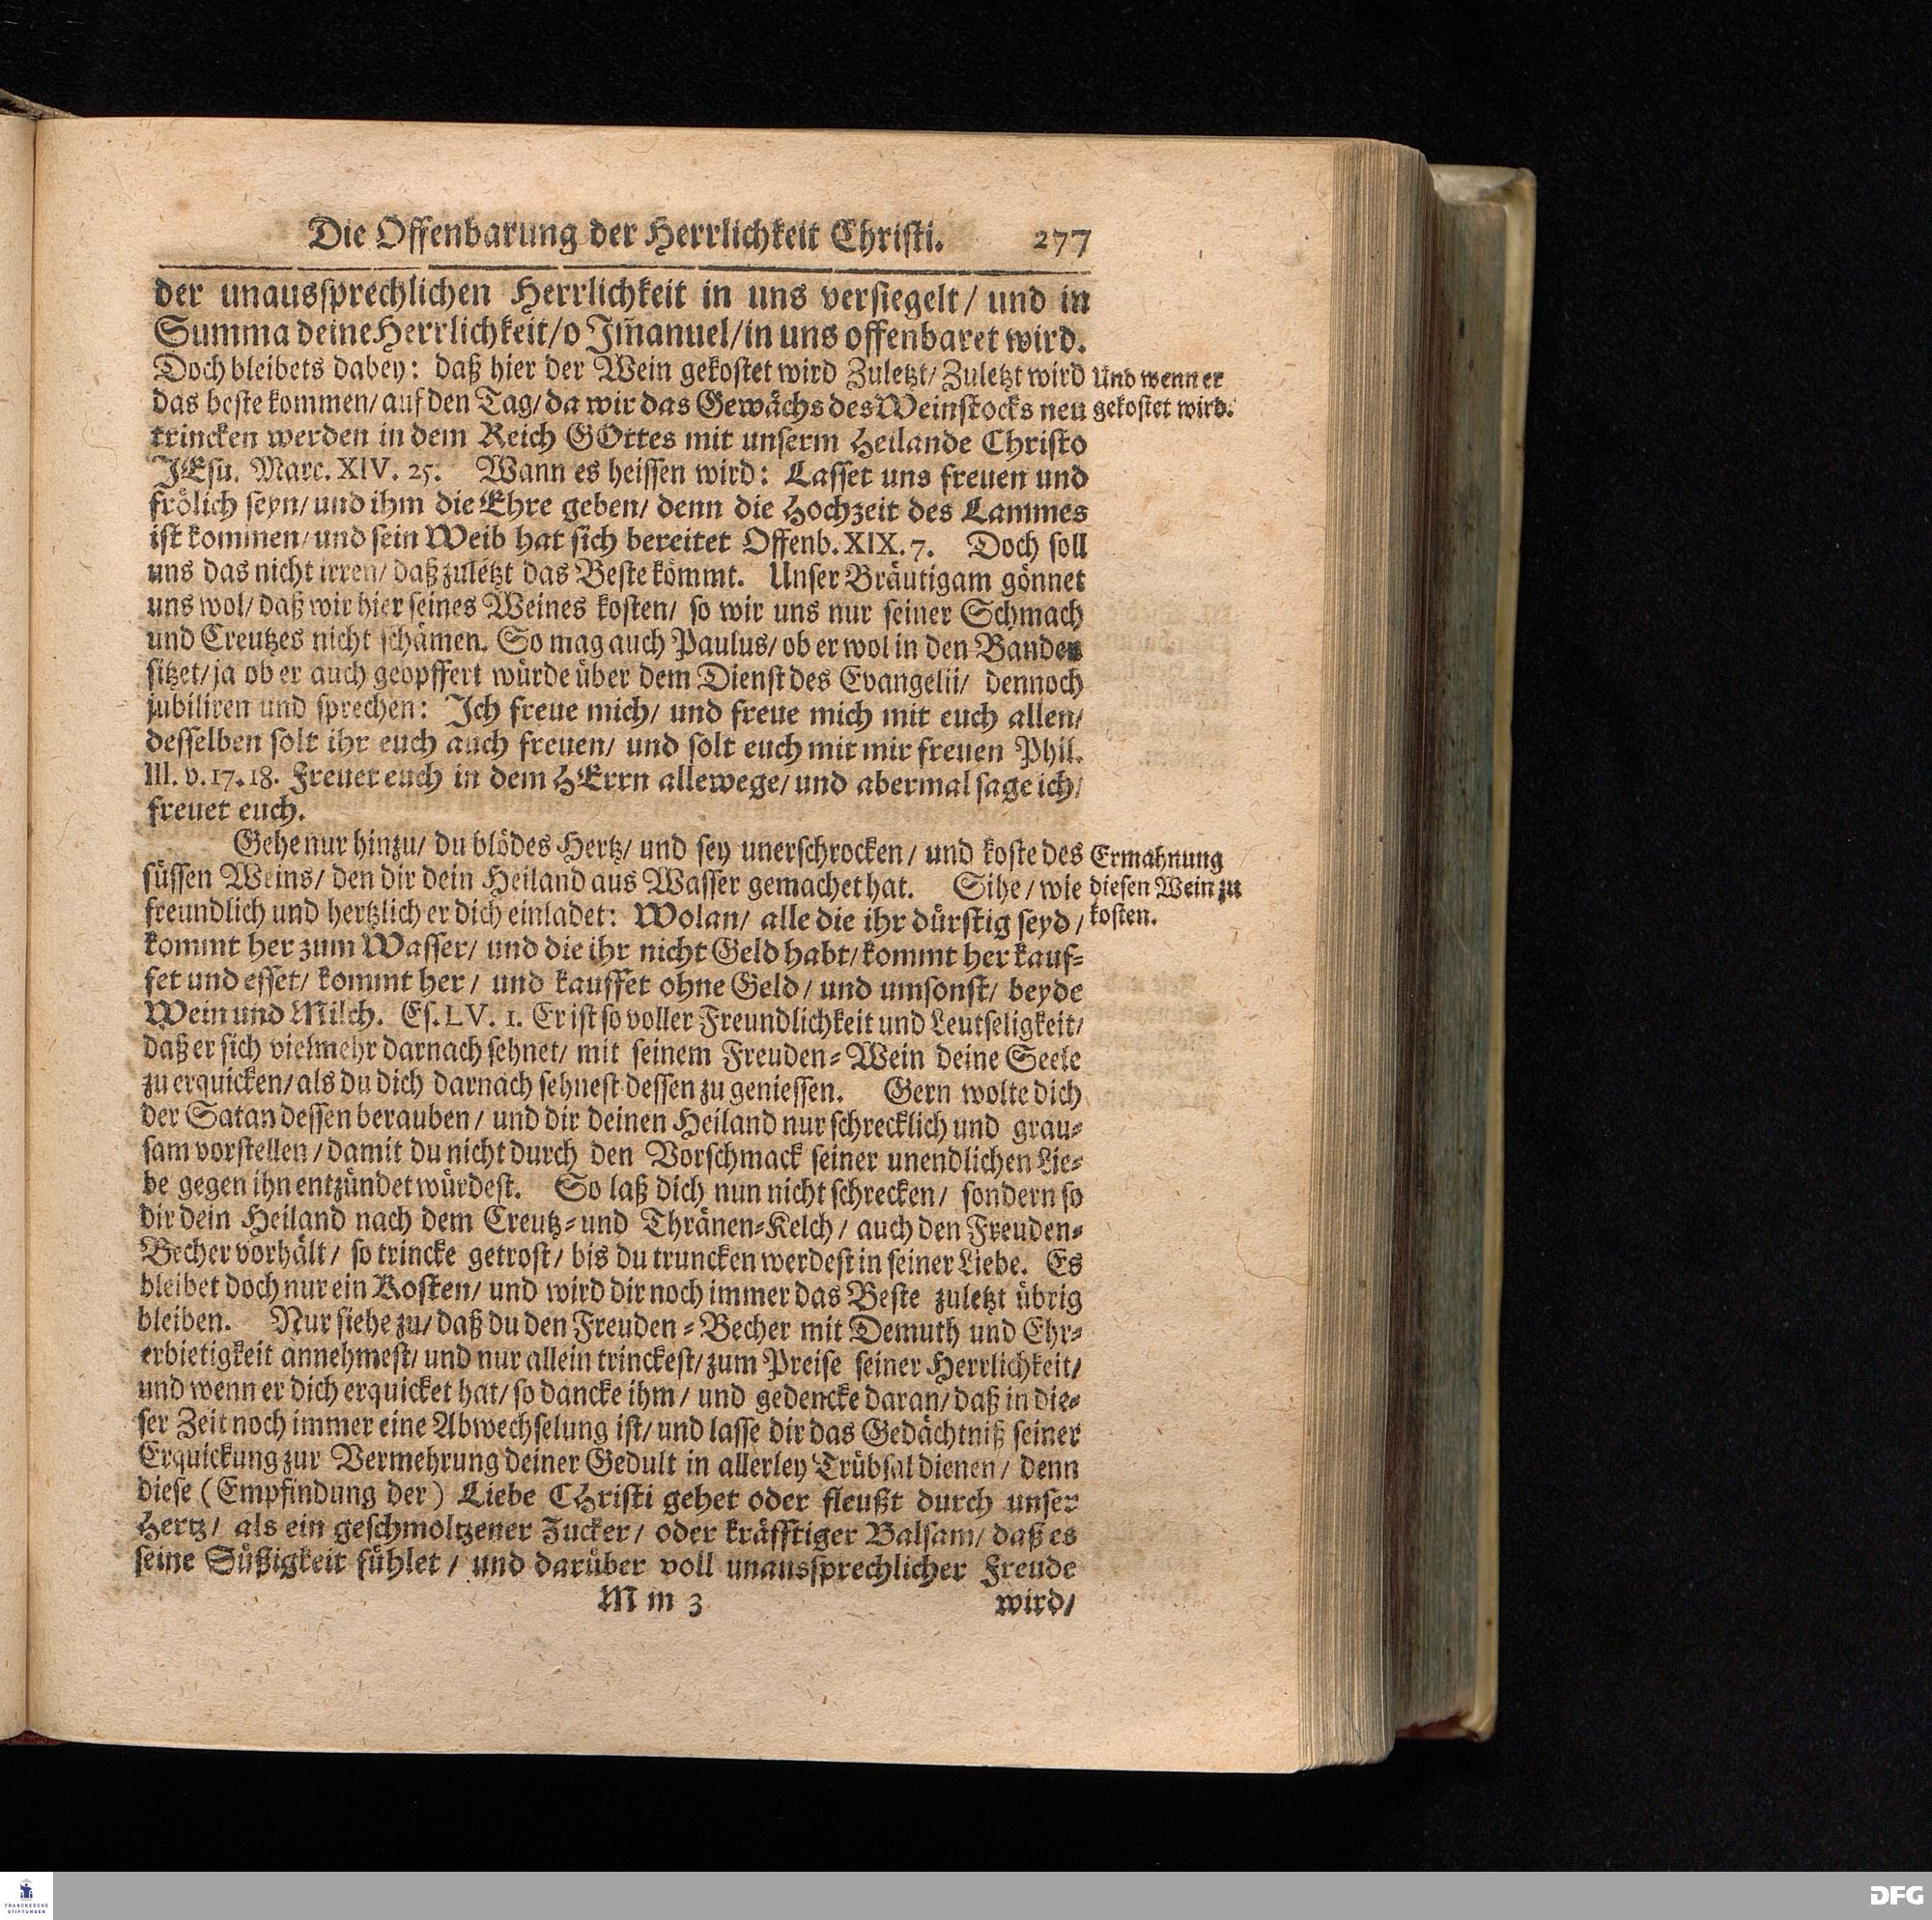 Die Offenbarung der Herrlichkeit Christi. 277
der unaussprechlichen Herrlichkeit in uns versiegelt/ und in
Summa deine Herrlichkeit/o Im̃anuel/in uns offenbaret wird.
Doch bleibets dabey: daß hier der Wein gekostet wird Zuletzt/ Zuletzt wird
Und wenn er
das beste kommen/ auf den Tag/ da wir das Gewächs des Weinstocks neu
gekostet wird.
trincken werden in dem Reich GOttes mit unserm Heilande Christo
JEsu. Marc. XIV. 25. Wann es heissen wird: Lasset uns freuen und
frölich seyn/ und ihm die Ehre geben/ denn die Hochzeit des Lammes
ist kommen/ und sein Weib hat sich bereitet Offenb. XIX. 7. Doch soll
uns das nicht irren/ daß zuletzt das Beste kömmt. Unser Bräutigam gönnet
uns wol/ daß wir hier seines Weines kosten/ so wir uns nur seiner Schmach
und Creutzes nicht schämen. So mag auch Paulus/ ob er wol in den Banden
sitzet/ ja ob er auch geopffert würde über dem Dienst des Evangelii/ dennoch
jubiliren und sprechen: Ich freue mich/ und freue mich mit euch allen/
desselben solt ihr euch auch freuen/ und solt euch mit mir freuen Phil.
III. v. 17. 18. Freuet euch in dem HErrn allewege/ und abermal sage ich/
freuet euch.
Gehe nur hinzu/ du blödes Hertz/ und sey unerschrocken/ und koste des
Ermahnung
süssen Weins/ den dir dein Heiland aus Wasser gemachet hat. Sihe/ wie
diesen Wein zu
freundlich und hertzlich er dich einladet: Wolan/ alle die ihr dürstig seyd/
kosten.
kommt her zum Wasser/ und die ihr nicht Geld habt/ kommt her kauf-
fet und esset/ kommt her/ und kauffet ohne Geld/ und umsonst/ beyde
Wein und Milch. Es. LV. 1. Er ist so voller Freundlichkeit und Leutseligkeit/
daß er sich vielmehr darnach sehnet/ mit seinem Freuden-Wein deine Seele
zu erquicken/ als du dich darnach sehnest dessen zu geniessen. Gern wolte dich
der Satan dessen berauben/ und dir deinen Heiland nur schrecklich und grau-
sam vorstellen/ damit du nicht durch den Vorschmack seiner unendlichen Lie-
be gegen ihn entzündet würdest. So laß dich nun nicht schrecken/ sondern so
dir dein Heiland nach dem Creutz-und Thränen-Kelch/ auch den Freuden-
Becher vorhält/ so trincke getrost/ bis du truncken werdest in seiner Liebe. Es
bleibet doch nur ein Kosten/ und wird dir noch immer das Beste zuletzt übrig
bleiben. Nur siehe zu/ daß du den Freuden-Becher mit Demuth und Ehr-
erbietigkeit annehmest/ und nur allein trinckest/ zum Preise seiner Herrlichkeit/
und wenn er dich erquicket hat/ so dancke ihm/ und gedencke daran/ daß in die-
ser Zeit noch immer eine Abwechselung ist/ und lasse dir das Gedächtniß seiner
Erquickung zur Vermehrung deiner Gedult in allerley Trübsal dienen/ denn
diese (Empfindung der) Liebe CHristi gehet oder fleußt durch unser
Hertz/ als ein geschmoltzener Zucker/ oder kräfftiger Balsam/ daß es
seine Süßigkeit fühlet/ und darüber voll unaussprechlicher Freude
M m 3 wird/
FRANCKESCHE
STIFTUNGEN
DFG